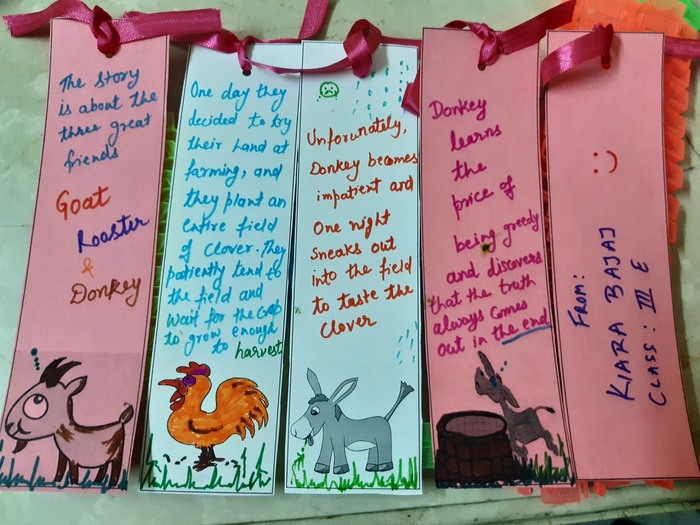 The Story
is about the
three great
friends
Goat
Rooster
&
Donkey
One day they
decided to try
their hand at
farming, and
they plant an
entire field
of clover. They
patiently tend to
the field and
wait for the crop
to grow enough
to harvest
Unfortunately,
Donkey becomes
impatient and
One night
sneaks out
into the field
to taste the
clover
Donkey
learns
the
price of
being greedy
and discovers
that the truth
always comes
out in the end
FROM:
KIARA BAJAJ
CLASS: III E